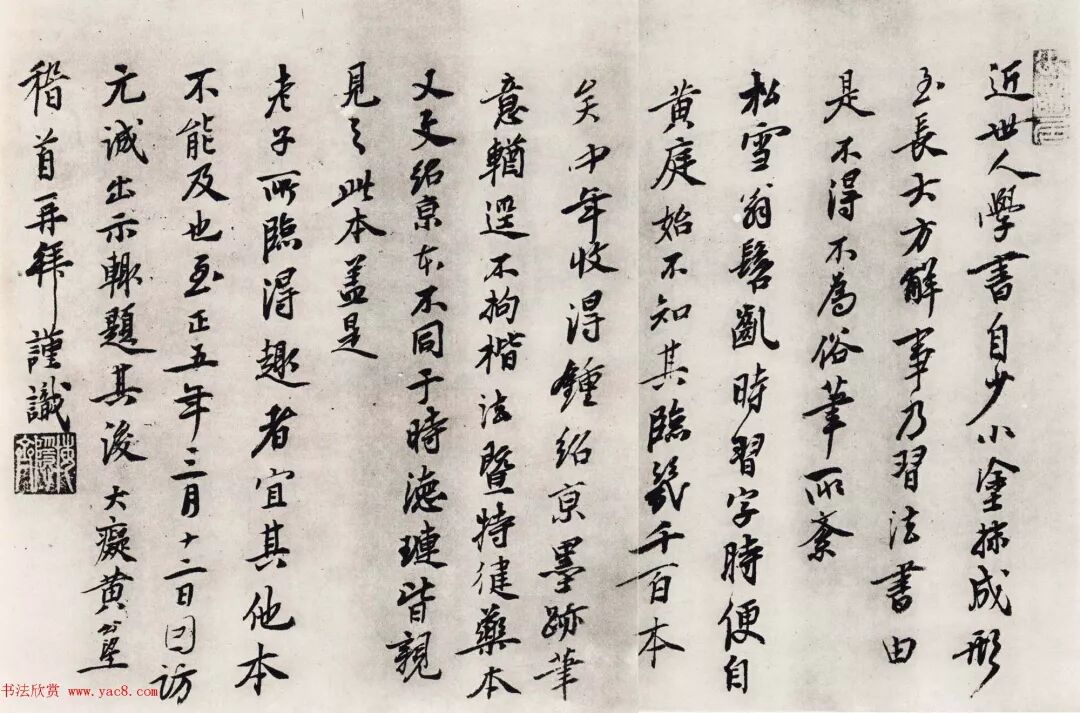 近世人學書自少小塗抹成形
至長大方解事乃習法書由
是不得不為俗筆所紊
松雪翁髫齓時習字時便自
黃庭始不知其臨幾千百本
矣中年收得鍾紹京墨跡筆
意輶逕不拘楷法暨特健藥本
又天紹京本不同于時德璉皆親
見之此本蓋是
老子所臨得趣者宜其他本
不能及也至正五年三月十二日因訪
元誠出示輙題其後 大癡黃公望
稽首再拜謹識
书法欣赏 www.yac8.com